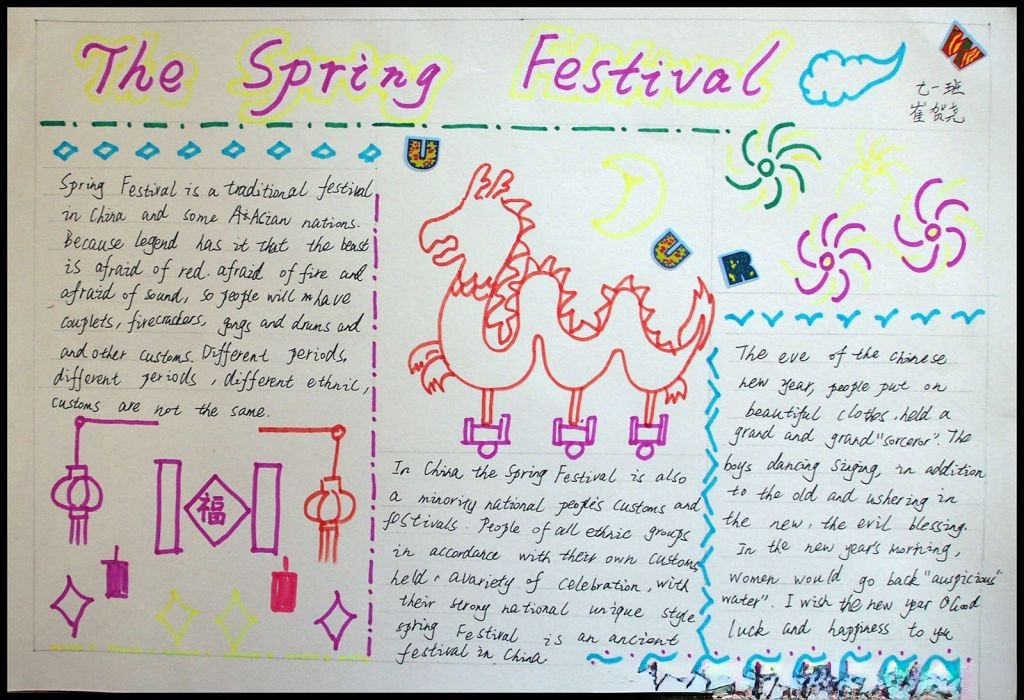 The Spring Festival
七一班
崔贺尧
Spring Festival is a traditional festival
in China and some Asian nations.
Because legend has it that the beast
is afraid of red. afraid of fire and
afraid of sound, so people will have
couplets, firecrackers, gongs and drums and
and other customs. Different periods,
different periods, different ethnic,
customs are not the same.
福
In China the Spring Festival is also
a minority national people's customs and
festivals. People of all ethnic groups
in accordance with their own customs
held a variety of celebration, with
their strong national unique style
spring Festival is an ancient
festival in China
The eve of the chinese
new year, people put on
beautiful clothes, held a
grand and grand "sorceror". The
boys dancing singing, in addition
to the old and ushering in
the new, the evil blessing.
In the new year's morning,
women would go back "auspicious
water". I wish the new year Good
luck and happiness to you
W
U
U
R